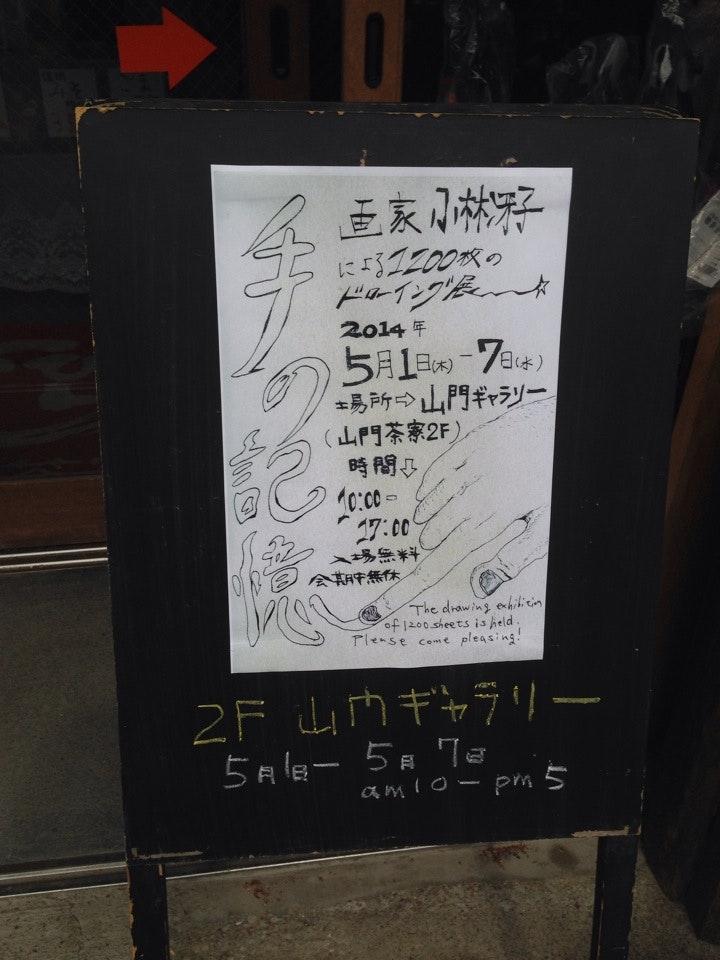 手の記憶
画家 小林冴子
による1200枚の
ドローイング展
2014年
5月1日(木)-7日(水)
場所⇨山門ギャラリー
(山門茶寮2F)
時間⇩
10:00-
17:00
入場無料
会期中無休
The drawing exhibition
of 1200 sheets is held.
Please come pleasing!
2F 山門ギャラリー
5月1日ー5月7日
am10-pm5